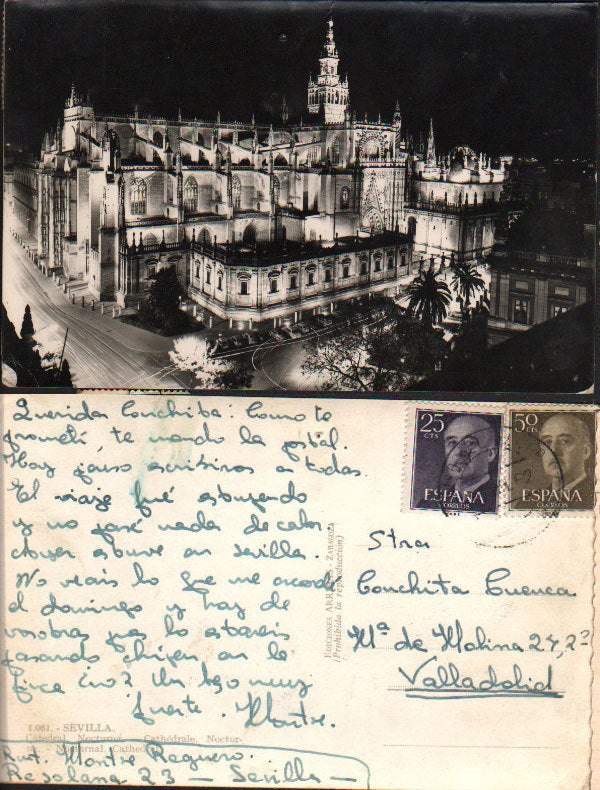 Querida Conchita: Como te
prometí te mando la postal.
Hoy pienso escribiros a todas.
El viaje fué estupendo
y no pasé nada de calor
ayer estuve en Sevilla.
No veáis lo que me acordé
el domingo y hoy de
vosotras que lo estaréis
pasando chipén en la
finca ¿no? Un beso muy
fuerte. Montse.
1.061. - SEVILLA.
Catedral. Nocturna. - Cathédrale. Noctur-
ne. - Nocturnal. Cathedral
Rmt. Montse Reguero.
Resolana 23 - Sevilla -
EDICIONES ARRIBAS - ZARAGOZA
(Prohibida la reproducción)
25
CTS
ESPAÑA
CORREOS
50
CTS
ESPAÑA
CORREOS
Strа
Conchita Cuenca
Mª de Molina 24, 2º
Valladolid